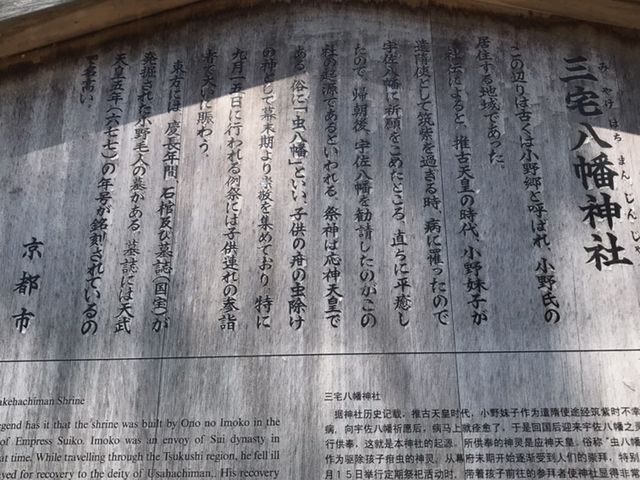 三宅八幡神社
み やけ はち まん じん じゃ
この辺りは古くは小野郷と呼ばれ、小野氏の
居住する地域であった。
社伝によると、推古天皇の時代、小野妹子が
遣隋使として筑紫を過ぎる時、病に罹ったので
宇佐八幡に祈願をこめたところ、直ちに平癒し
たので、帰朝後、宇佐八幡を勧請したのがこの
社の起源であるといわれる。祭神は応神天皇で
ある。俗に「虫八幡」といい、子供の疳の虫除け
の神として幕末期より崇敬を集めており、特に
九月十五日に行われる例祭には子供連れの参詣
者で大いに賑わう。
東方には、慶長年間、石棺及び墓誌(国宝)が
発掘された小野毛人の墓がある。墓誌には天武
天皇五年(六七七)の年号が銘刻されているの
で名高い。
京都市
akehachiman Shrine
egend has it that the shrine was built by Ono no Imoko in the
of Empress Suiko. Imoko was an envoy of Sui dynasty in
at time. While travelling through the Tsukushi region, he fell ill
ayed for recovery to the deity of Usahachiman. His recovery
三宅八幡神社
据神社历史记载，推古天皇时代，小野妹子作为遣隋使途经筑紫时不幸
病，向宇佐八幡祈愿后，病马上就痊愈了，于是回国后迎来宇佐八幡之灵
行供奉，这就是本神社的起源。所供奉的神灵是应神天皇，俗称“虫八幡
作为驱除孩子疳虫的神灵，从幕府末期开始逐渐受到人们的崇拜，特别
月15日举行定期祭祀活动时，带着孩子前往的参拜者使神社显得非常